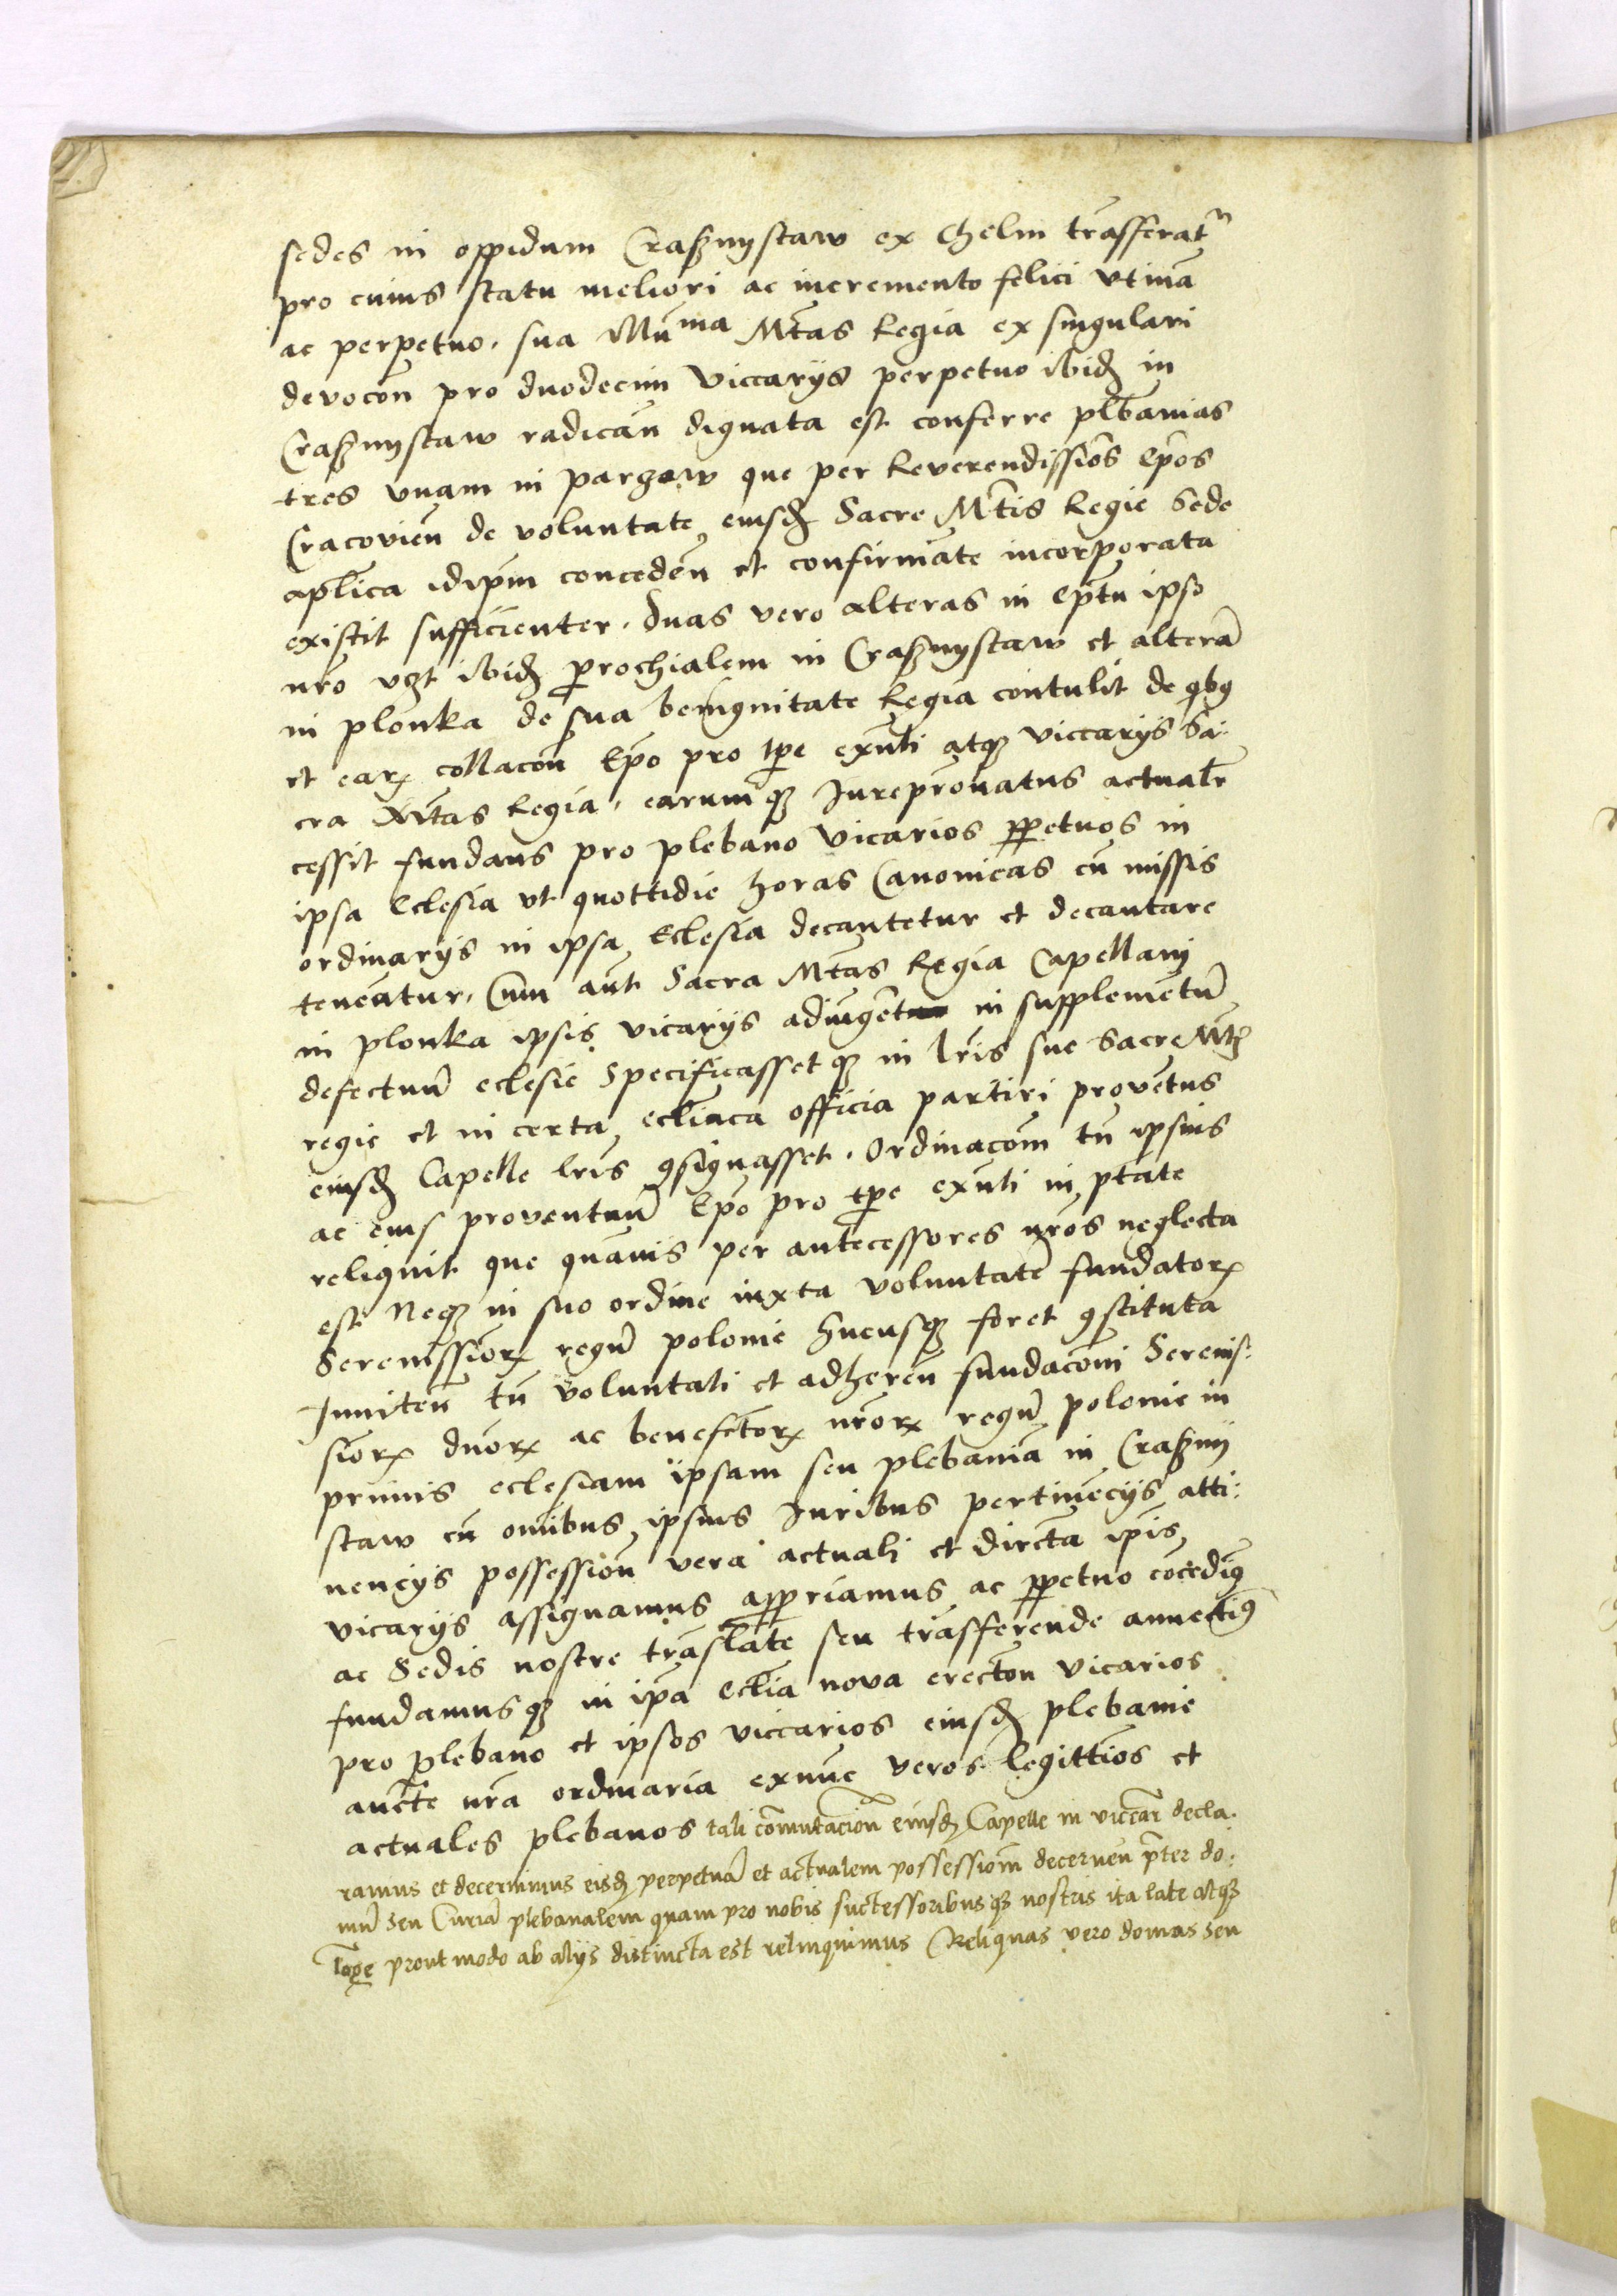 sedes in oppidum Craßnystaw ex Chelm trāsferat᷑
pro cuius statu meliori ac incremento felici vtinā
ac perpetuo, sua Illu᷑ma Mt̄as Regia ex singulari
devocōn pro duodecim viccarijs perpetuo ibid᷑ in
Craßnystaw radicān dignata est conferre pl̄banias
tres vnam in parzow que per Reverendissīos Ep̄os
Cracovień de voluntate eiusd᷑ Sacre Mt̄is Regie Sede
aplīca idip̄m conceden̄ et confirmāte incorporata
existit sufficienter, Duas vero alteras in Ep̄tu ipso
nrō vꝫt ibid᷑ ꝑrochialem in Craßnystaw et alterā
in plonka de sua benignitate Regia contulit de qbꝯ
et earꝝ collacōn Ep̄o pro tp̄e exn̄ti atqꝫ viccarijs Sa:
cra Mt̄as Regia, earumqꝫ Jurepr̄onatus actualr̄
cessit fundans pro plebano vicarios ꝑpetuos in
ipsa Eclesia vt quottidie horas Canonicas cū missis
ordinarijs in ipsa Eclesia decantetur et decantare
teneātur, Cum aūt Sacra Mt̄as Regia Capellam
in plonka ipsis vicarijs adiūgēt in supplemētū
defectuū eclesie Specificassetqꝫ in lr̄is sue Sacre Mt̄
regie et in certa ecl̄iaca officia partiri provētus
eiusd᷑ Capelle lr̄is ꝯsignasset. Ordinacōm tn̄ ipsius
ac eius proventuū Ep̄o pro tp̄e exn̄ti in ptāte
reliquit que quāuis per antecessores nr̄os neglecta
est Neqꝫ in suo ordine iuxta voluntatē fundatorꝝ
Serenissīorꝝ regū polonie hucusqꝫ foret ꝯstituta
Inniten̄ tn̄ voluntati et adheren̄ fundacōni Serenis:
sīorꝝ dn̄orꝝ ac benefc̄torꝝ nr̄orꝝ regū polonie in
primis eclesiam ipsam seu plebaniā in Craßny
staw cū omībus ipsius Juribus pertinēcijs atti:
nencijs possessiōn vera actuali et dirc̄ta ip̄is
vicarijs assignamus aꝓpriamus ac ꝑpetuo cōcedimꝯ
ac Sedis nostre trāslate seu trāsferende annectimꝯ
fundamusqꝫ in ip̄a Ecl̄ia nova erectōn vicarios
pro plebano et ipsos viccarios eiusd᷑ plebanie
auct̄te nr̄a ordinaria exnūc veros legittīos et
actuales plebanos tali cōmutaciōn eiusd᷑ Capelle in viccar̄ decla:
ramus et decernimus eisd᷑ perpetuā et actualem possessiōm decernen̄ pr̄ter do:
mū seu Curiā plebanalem quam pro nobis successoribusqꝫ nostris ita late atqꝫ
lōge prout modo ab alijs distincta est relinquimus Reliquas vero domus seu